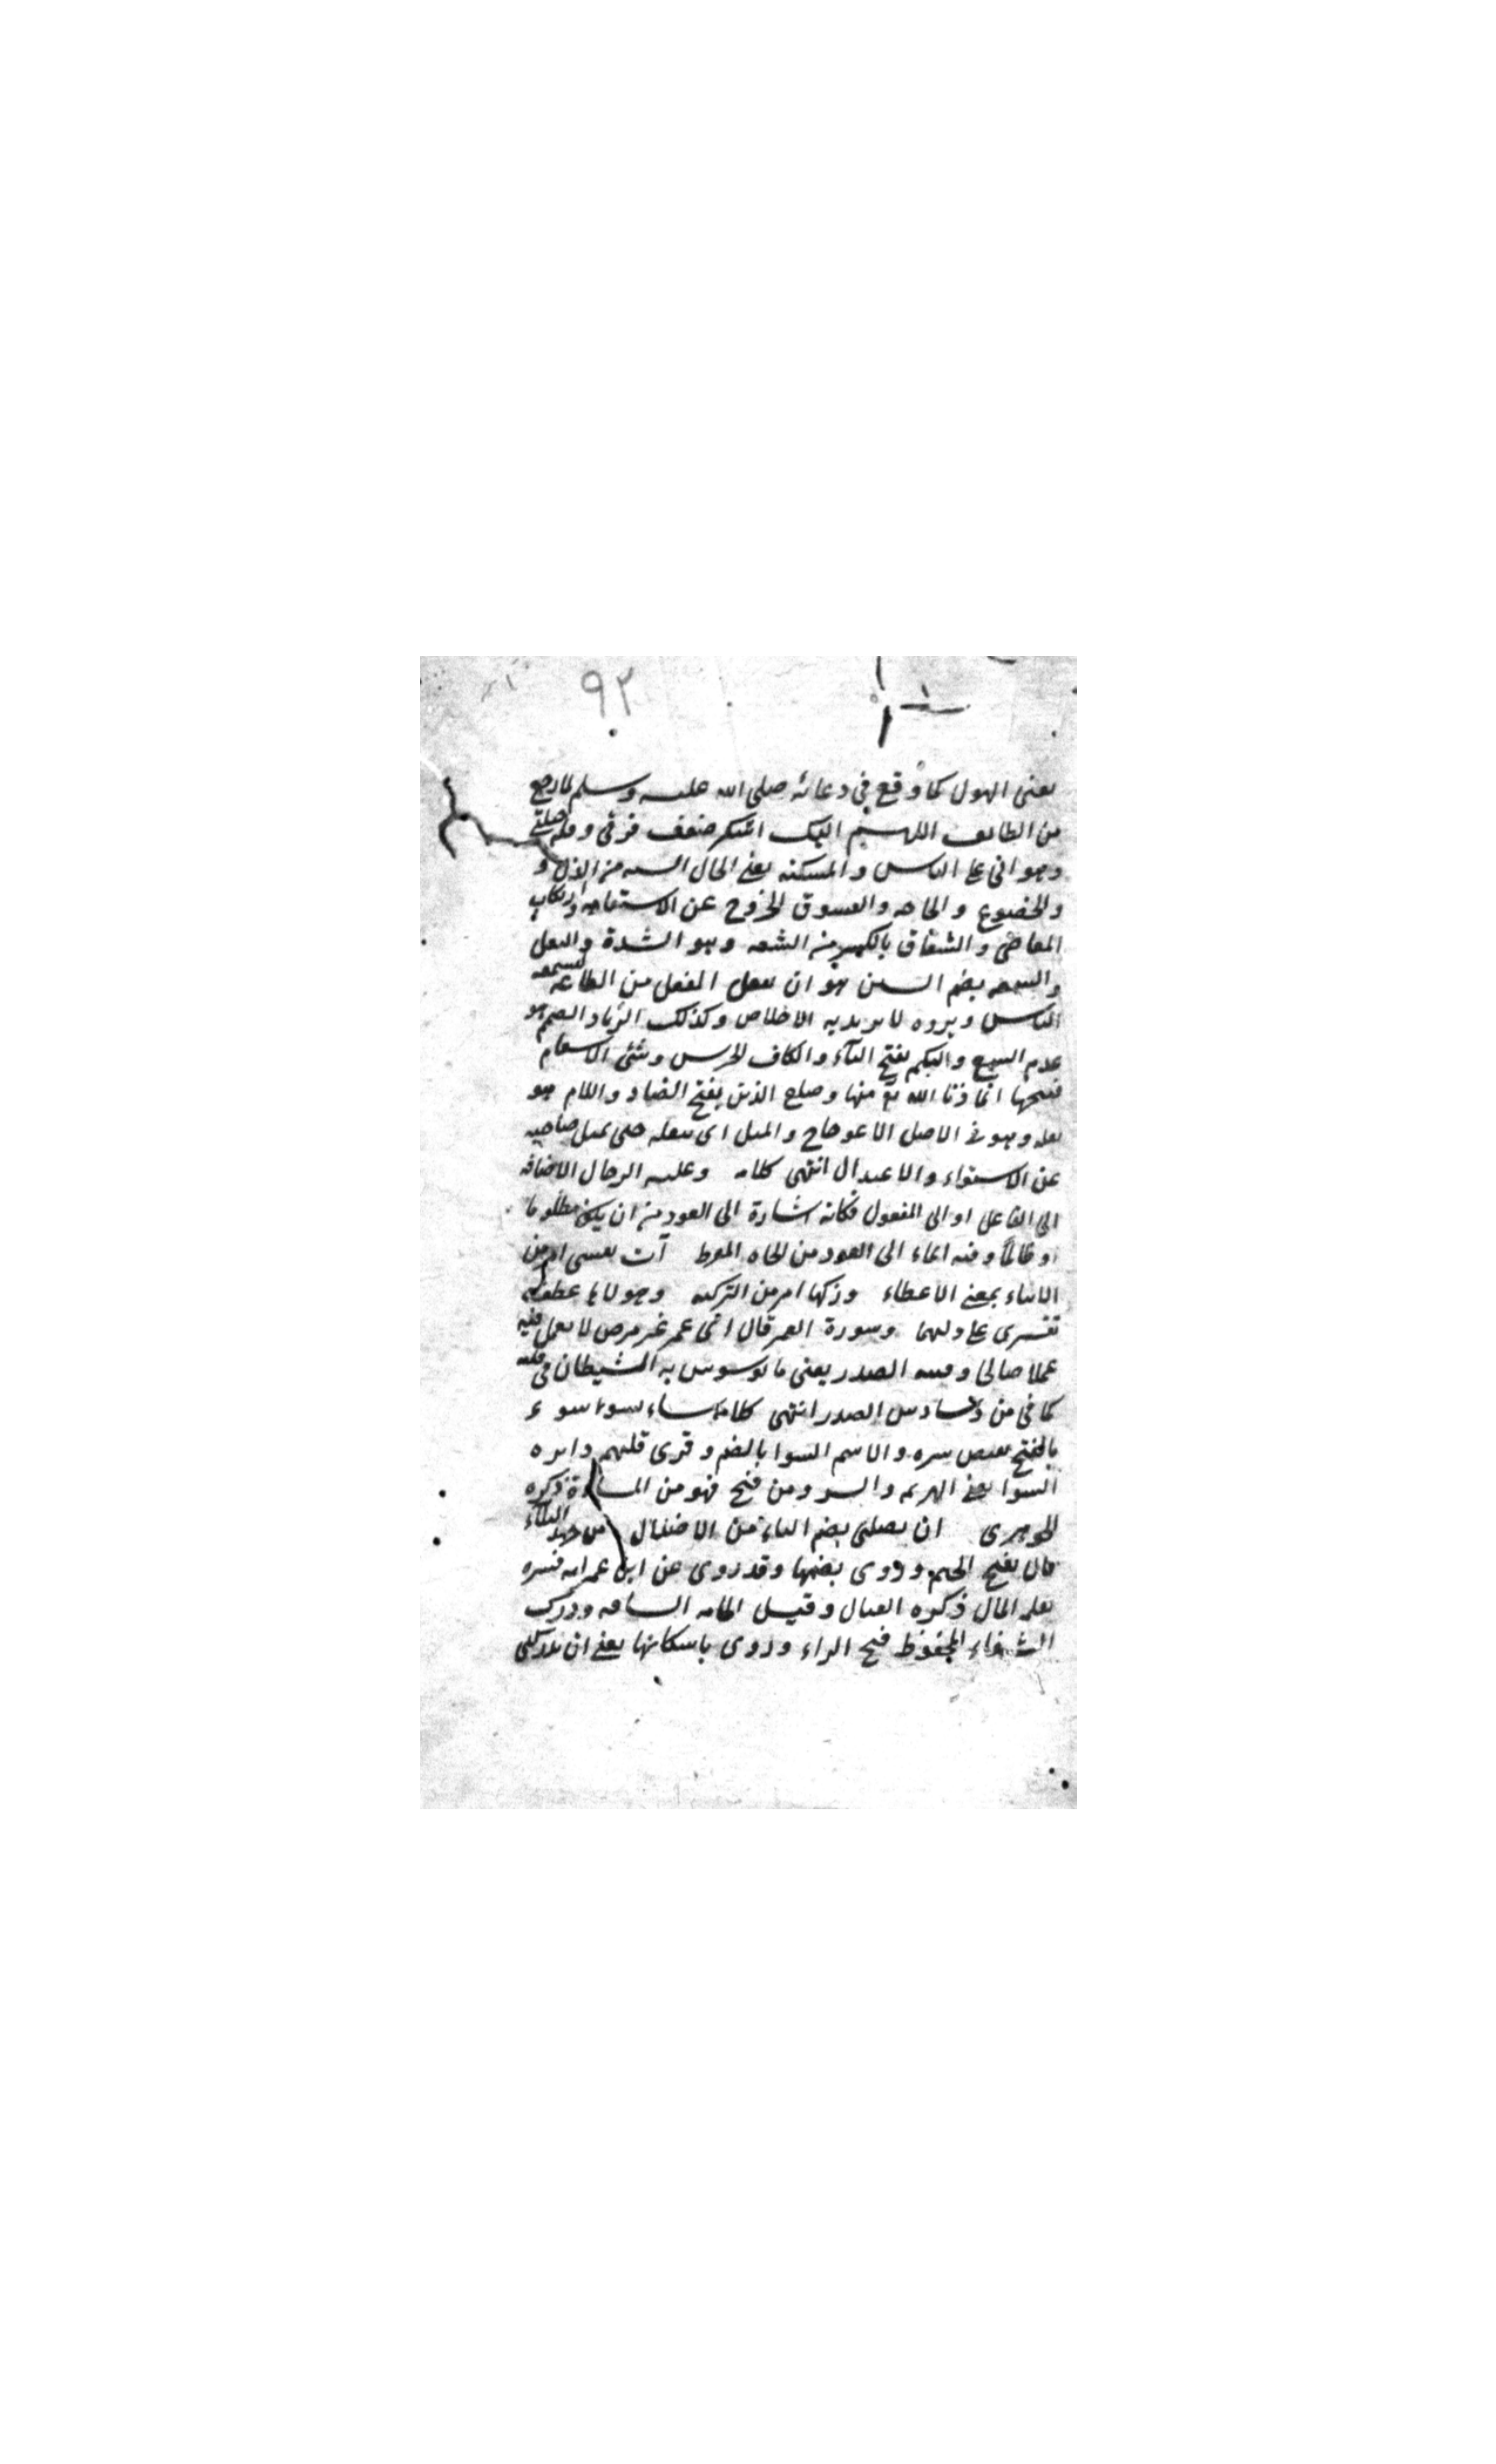 ٩٢
يعنى الهول كما وقع في دعائه صلى الله عليه وسلم لما رجع
من الطائف اللهم اليك اشكو ضعف قوتى وقلة حيلتى
وهوانى على الناس والمسكنه يعنى الحال السيئه من الذل و
والخضوع والحاجه والفسوق الخروج عن الاستقامه وارتكاب
المعاصى والشقاق بالكسر من الشقه وهو الشدة والثقل
والسمعه بضم السين هو ان يفعل الفعل من الطاعه ليسمعه
الناس ويروه لا يريد به الاخلاص وكذلك الرياء والصمم هو
عدم السمع والبكم بفتح الباء والكاف الخرس وسئ الاسقام
قبيحها اعاذنا الله تع منها وضلع الدين بفتح الضاد واللام هو
ثقله وهو في الاصل الاعوجاج والميل اى يثقله حتى يميل صاحبه
عن الاستواء والاعتدال انتهى كلامه وغلبه الرجال الاضافه
الى الفاعل او الى المفعول فكانه اشارة الى العوذ من ان يكون مظلوما
او ظالما وفيه ايماء الى العوذ من الجاه المفرط آت نفسى امر من
الايتاء بمعنى الاعطاء وزكها امر من التزكيه ومولاها عطف
تفسيرى على وليها وسورة العمر قال اى عمر غير مرض لا يعمل فيه
عملا صالحا وفتنه الصدر يعنى ما يوسوس به الشيطان في قلبه
كما في من وساوس الصدر انتهى كلامه ساء سوءا سوء
بالفتح نقيض سره والاسم السوء بالضم وقرى عليهم دائره
السوء يعنى الهزيمه والشر ومن فتح فهو من المساءة ذكره
الجوهرى ان يضلنى بضم الياء من الاضلال من جهد البلاء
قال بفتح الجيم وروى بضمها وقد روى عن ابن عمر انه فسره
بقله المال وكثره العيال وقيل الحاله الشاقه ودرك
الشقاء المحفوظ فتح الراء وروى باسكانها يعنى ان يدركنى